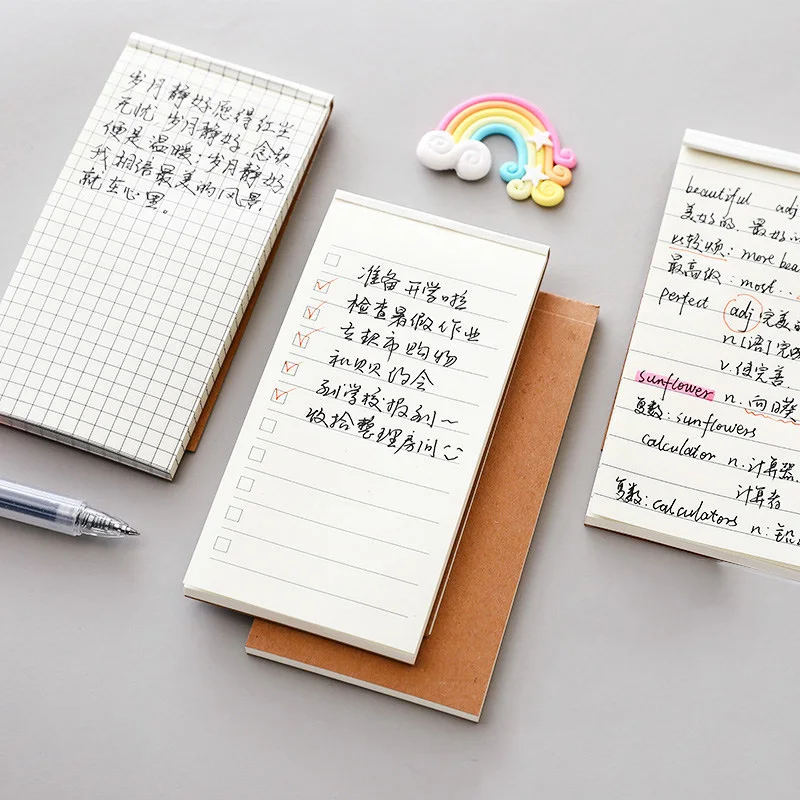 岁月静好愿得红尘
无忧 岁月静好,念起
便是温暖;岁月静好
我相信最美的风景,
就在心里。
准备开学啦
检查暑假作业
去超市购物
和贝贝约会
到学校报到~
收拾整理房间
beautiful adj
美好的.最好
比较级: more bea
最高级: most...
perfect adj 完美的
n [语] 完
v. 使完善.
sunflower n. 向日葵
复数: sunflowers
calculator n. 计算器.
计算者
复数: calculators n: